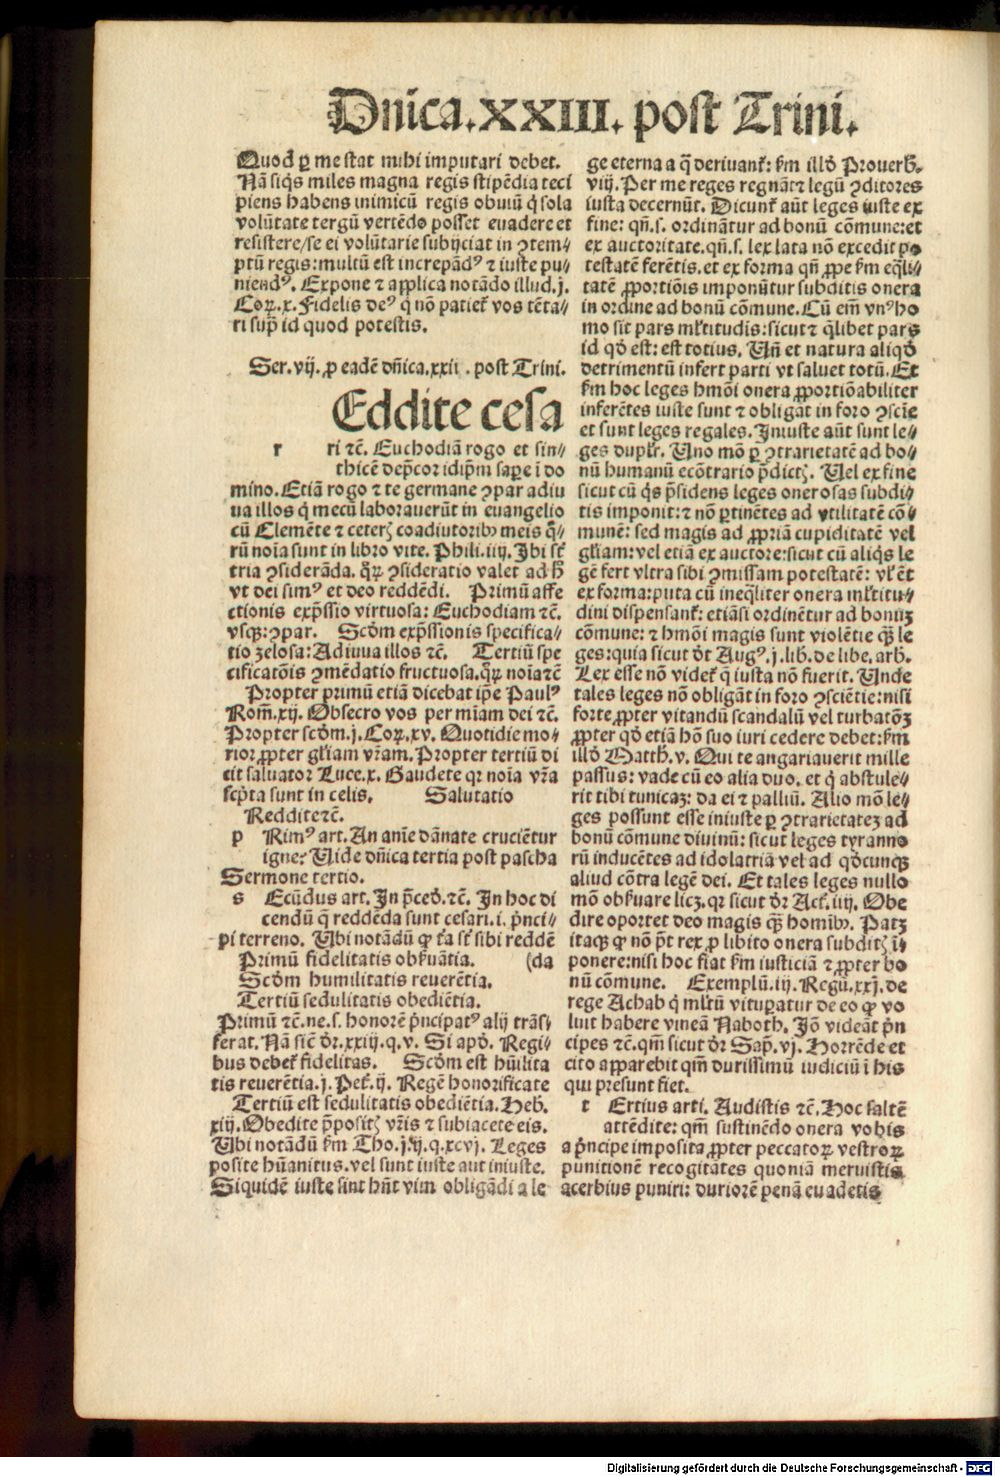 Dñica.XXIII. post Trini.
Quod ꝑ me stat mihi imputari debet.
Nā siq̄s miles magna regis stipēdia reci
piens habens inimicū regis obuiū q̇ sola
volūtate tergū vertēdo posset euadere et
resistere/se ei volūtarie subijciat in ꝯtem⸗
ptū regis: multū est increpādꝰ ⁊ iuste pu⸗
niendꝰ. Expone ⁊ applica notādo illud.j.
Coꝝ.x. Fidelis deꝰ q̇ nō patiet᷑ vos tēta⸗
ri supͣ id quod potestis.
Ser.vij. ꝓ eadē dñica.xxii. post Trini.
Eddite cesa
r ri ⁊c̄. Euchodiā rogo et sin⸗
thicē dep̄coꝛ idip̄m saꝑe ī do
mino. Etiā rogo ⁊ te germane ꝯpar adiu
ua illos q̇ mecū laborauerūt in euangelio
cū Clemēte ⁊ ceterꝭ coadiutoribꝰ meis q̄⸗
rū noīa sunt in libro vite. Phili.iiij. Ibi st̄
tria ꝯsiderāda. q̄ꝝ ꝯsideratio valet ad h̄
vt dei simꝰ et deo reddēdi. Primū affe
ctionis exp̄ssio virtuosa: Euchodiam ⁊c̄.
vsqꝫ: ꝯpar. Scd̓m exp̄ssionis specifica⸗
tio zelosa: Adiuua illos ⁊c̄. Tertiū spe
cificatōis ꝯmēdatio fructuosa. q̄ꝝ noīa ⁊c̄
Propter primū etiā dicebat ip̄e Paulꝰ
Rom̄.xij. Obsecro vos per mīam dei ⁊c̄.
Propter scd̓m.j. Coꝝ.xv. Quotidie mo⸗
rior ꝓpter gl̄iam vr̄am. Propter tertiū di
cit saluator Luce.x. Gaudete qꝛ noīa vr̄a
scp̄ta sunt in celis. Salutatio
Reddite ⁊c̄.
p Rimꝰ art. An anīe dānate cruciētur
igne? Uide dñica tertia post pascha
Sermone tertio.
s Ecūdus art. In p̄ced̓. ⁊c̄. In hoc di
cendū q̄ reddēda sunt cesari.i. p̄nci⸗
pi terreno. Ubi notādū ꝙ tͣa st̄ sibi reddē
Primū fidelitatis obẜuātia. (da
Scd̓m humilitatis reuerētia.
Tertiū sedulitatis obediētia.
Primū ⁊c̄. ne.s. honorē p̄ncipatꝰ alij trās⸗
ferat. Nā sic̄ d̓r.xxiij.q.v. Si apd̓. Regi⸗
bus debet᷑ fidelitas. Scd̓m est hūilita
tis reuerētia.j. Pet᷑.ij. Regē honorificate
Tertiū est sedulitatis obediētia. Heb̄.
xiij. Obedite p̄positꝭ vr̄is ⁊ subiacete eis.
Ubi notādū ẜm Tho.j.ij.q.xcvj. Leges
posite hūanitus. vel sunt iuste aut iniuste.
Siquidē iuste sint hn̄t vim obligādi a le
ge eterna a q̄ deriuant᷑: ẜm illd̓ Prouerb̄.
viij. Per me reges regnāt ⁊ legū ꝯditores
iusta decernūt. Dicunt᷑ aūt leges iuste ex
fine: qn̄.s. ordināt᷑ur ad bonū cōmune: et
ex auctoritate. qn̄.s. lex lata nō excedit po
testatē ferētis. et ex forma qn̄ ꝓpe ẜm eq̄li⸗
tatē ꝓportiōis imponūtur subditis onera
in ordine ad bonū cōmune. Cū em̄ vnꝰ ho
mo sit pars ml̄titudis: sicut ⁊ q̄libet pars
id qd̓ est: est totius. Uñ et natura aliqd̓
detrimentū infert parti vt saluet totū. Et
ẜm hoc leges hm̄oi onera ꝓportiōabiliter
inferētes iuste sunt ⁊ obligāt in foro ꝯscīe
et sunt leges regales. Iniuste aūt sunt le⸗
ges duplr̄. Uno mō ꝑ ꝯtrarietatē ad bo⸗
nū humanū ecōtrario p̄dictꝭ. Uel ex fine
sicut cū q̄s p̄sidens leges onerosas subdi⸗
tis imponit: ⁊ nō ꝑtinētes ad vtilitatē cō⸗
munē: sed magis ad ꝓpriā cupiditatē vel
gl̄iam: vel etiā ex auctore: sicut cū aliq̄s le
gē fert vltra sibi ꝯmissam potestatē: vl̓ ēt
ex forma: puta cū ineq̄liter onera ml̄titu⸗
dini dispensant᷑: etiāsi ordinētur ad bonuꝫ
cōmune: ⁊ hm̄oi magis sunt violētie qꝫ̄ le
ges: quia sicut d̓t Augꝰ.j. lib̄. de libe. arb̄.
Lex esse nō videt᷑ q̇ iusta nō fuerit. Unde
tales leges nō obligāt in foro ꝯsciētie: nisi
forte ꝓpter vitandū scandalū vel turbatōꝫ
ꝓpter qd̓ etiā hō suo iuri cedere debet: ẜm
illd̓ Matth̄.v. Qui te angariauerit mille
passus: vade cū eo alia duo. et q̇ abstule⸗
rit tibi tunicaꝫ: da ei ⁊ palliū. Alio mō le⸗
ges possunt esse iniuste ꝑ ꝯtrarietateꝫ ad
bonū cōmune diuinū: sicut leges tyranno
rū inducētes ad idolatriā vel ad qd̓cunqꝫ
aliud cōtra legē dei. Et tales leges nullo
mō obẜuare licꝫ. qꝛ sicut d̓r Act᷑.iiij. Obe
dire oportet deo magis qꝫ̄ homībꝰ. Patꝫ
itaqꝫ ꝙ nō p̄t rex ꝓ libito onera subditꝭ ī⸗
ponere: nisi hoc fiat ẜm iusticiā ⁊ ꝓpter bo
nū cōmune. Exemplū.iij. Regū.xxj. de
rege Achab q̇ ml̄tū vituꝑatur de eo ꝙ vo
luit habere vineā Naboth. Iō videāt p̄n
cipes ⁊c̄. qm̄ sicut d̓r Sap̄.vj. Horrēde et
cito apparebit qm̄ durissimū iudiciū ī his
qui presunt fiet.
t Ertius arti. Audistis ⁊c̄. Hoc saltē
attēdite: qm̄ sustinēdo onera vobis
a p̄ncipe imposita ꝓpter peccatoꝝ vestroꝝ
punitionē recogitātes quoniā meruistis
acerbius puniri: duriorē penā euadetis
Digitalisierung gefördert durch die Deutsche Forschungsgemeinschaft - DFG